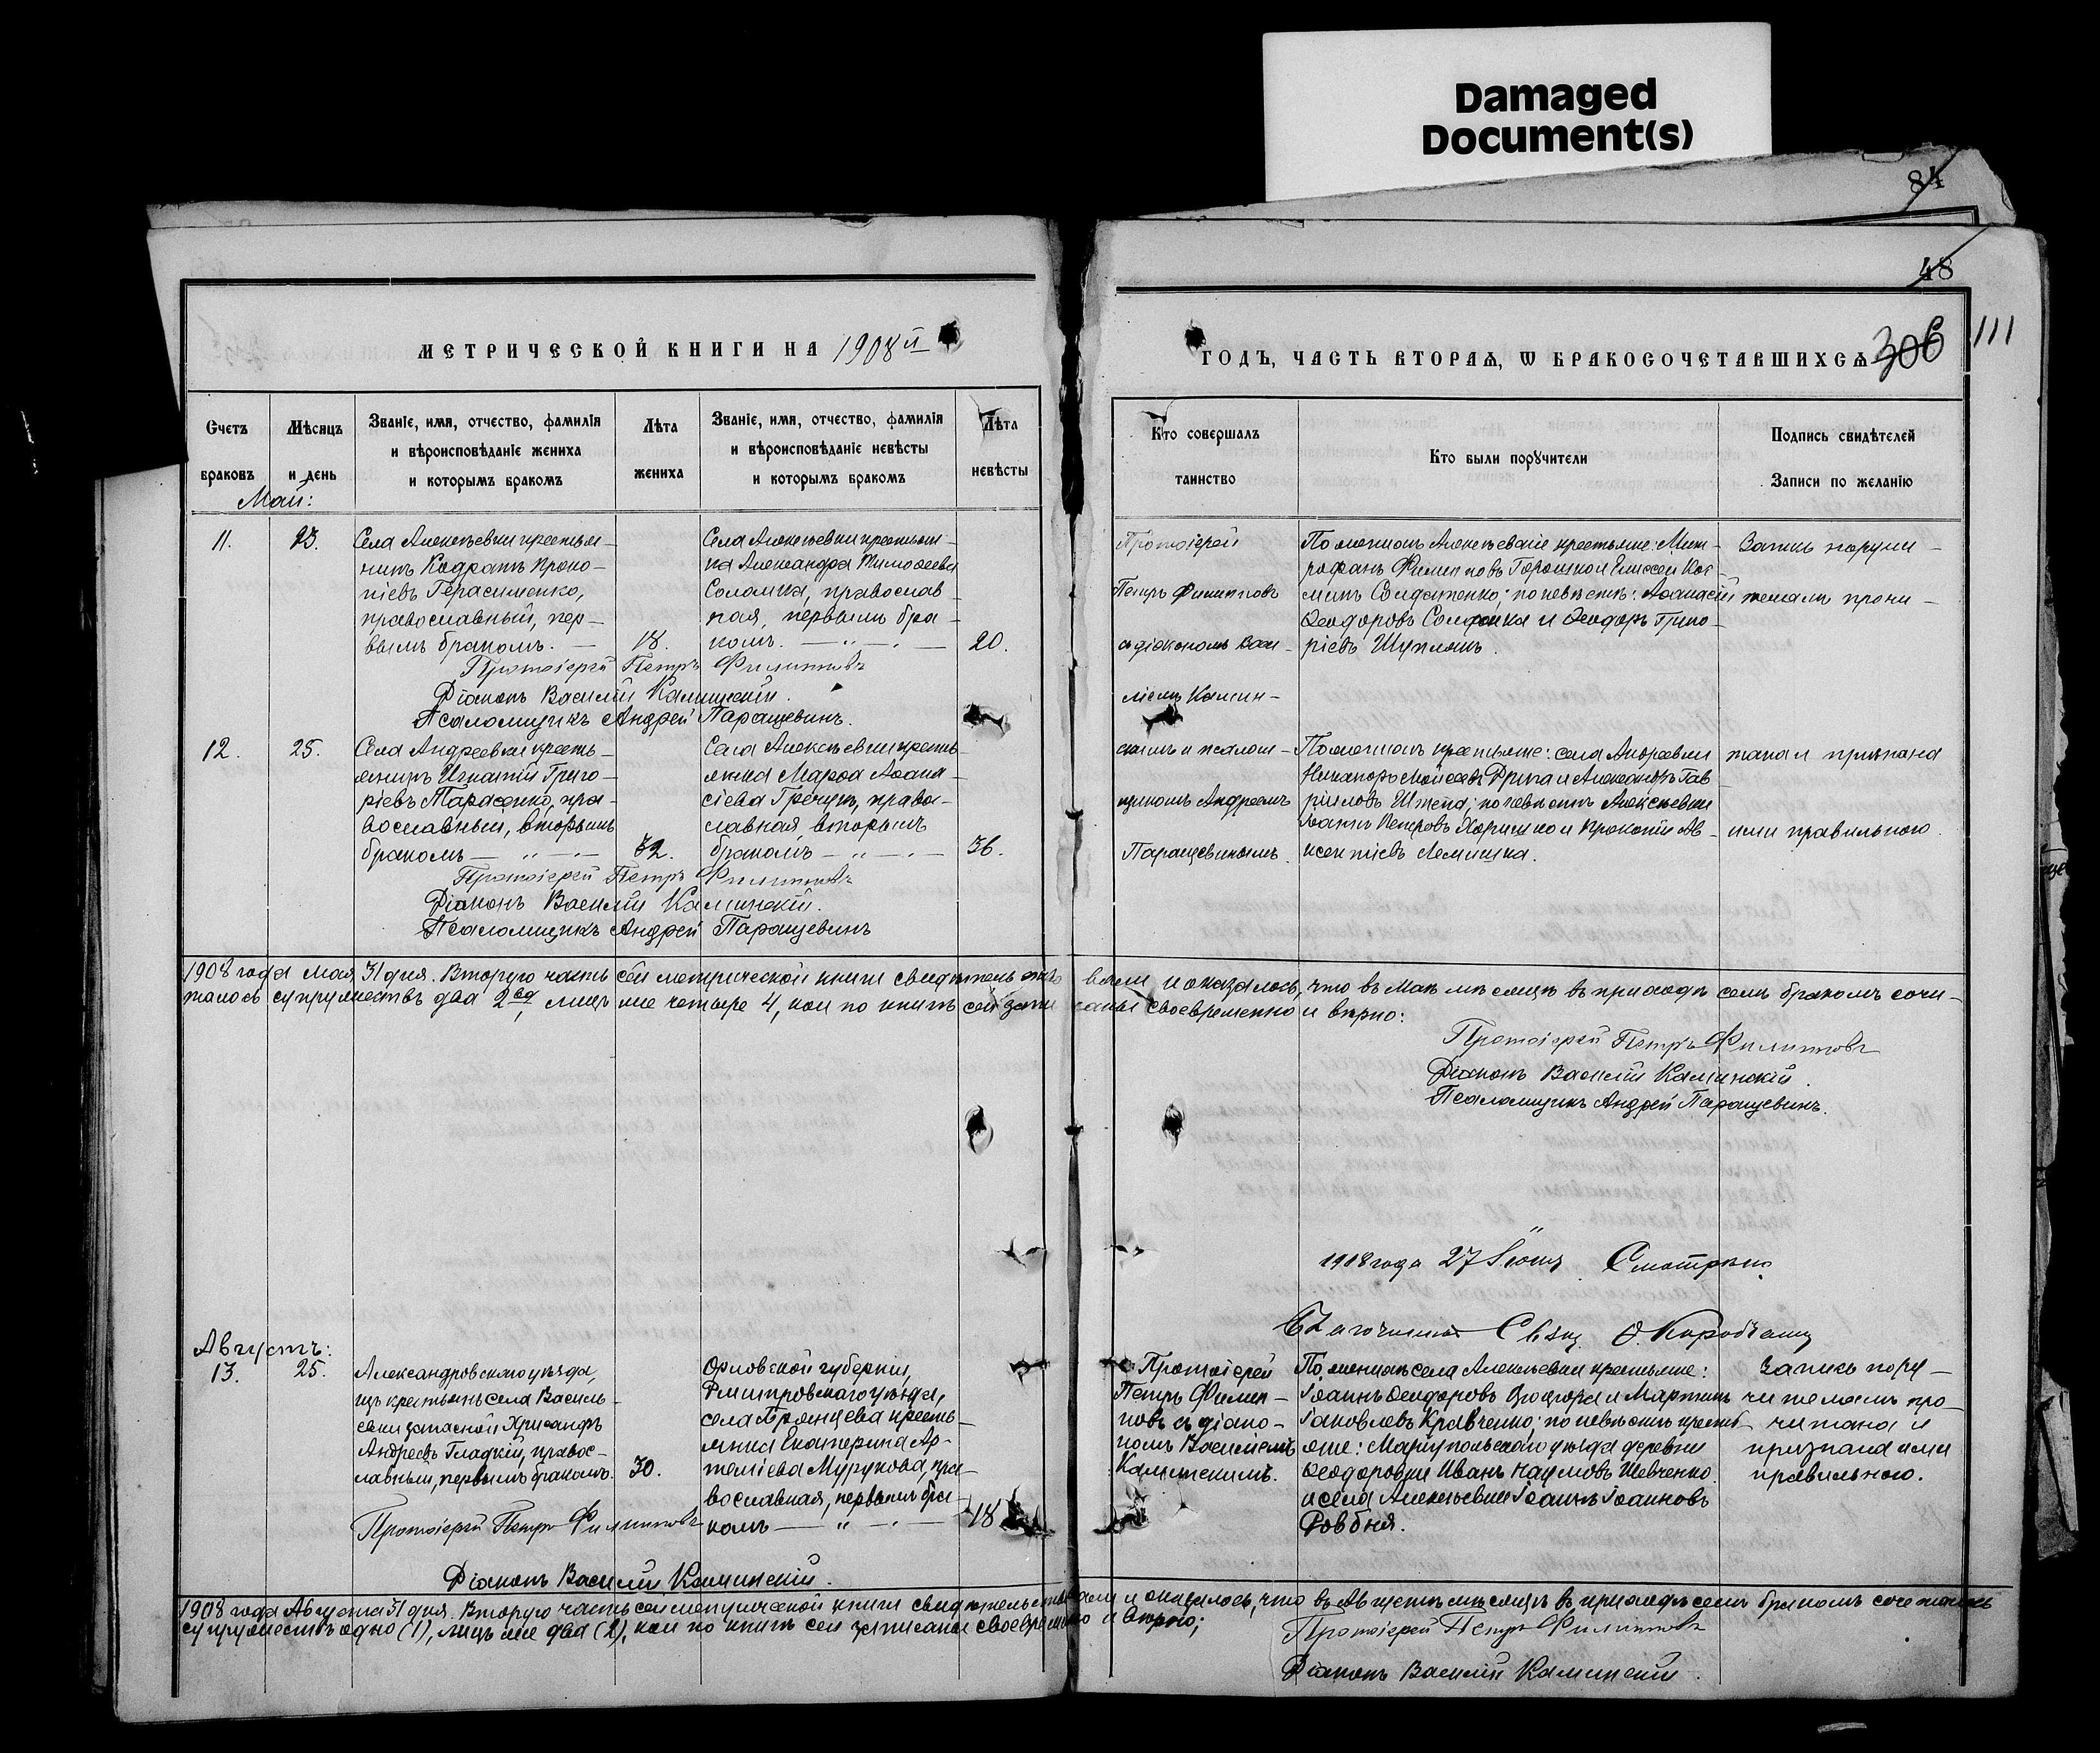 Damaged
Document(s)
84
48
МЕТРИЧЕСКОЙ КНИГИ НА 1908й
ГОДЪ, ЧАСТЬ ВТОРАѦ, Ѡ БРАКОСОЧЕТАВШИХСѦ
306
111
Счетъ
браковъ
Мѣсяцъ
и день
Званіе, имя, отчество, фамилія
и вѣроисповѣданіе жениха
и которымъ бракомъ
Лѣта
жениха
Званіе, имя, отчество, фамилія
и вѣроисповѣданіе невѣсты
и которымъ бракомъ
Лѣта
невѣсты
Кто совершалъ
таинство
Кто были поручители
Подпись свидѣтелей
Записи по желанію
Май:
11.
23.
Села Алексѣевки крестья-
нинъ Кодратъ Проко-
піевъ Герасименко,
православный, пер-
вымъ бракомъ. —
18.
Села Алексѣевки крестьян-
ка Александра Тимоѳеева
Соломка, православ-
ная, первымъ бра-
комъ. — „ — . —
20.
Протоіерей
Петръ Филипповъ
съ діакономъ Васи-
ліемъ Камин-
По женихѣ Алексѣевскіе крестьяне: Мит-
рофанъ Филипповъ Горошко и Елисей Кос-
минъ Солдатенко; по невѣстѣ: Аѳанасій
Ѳеодоровъ Соломка и Ѳеодоръ Григо-
ріевъ
Запись поручи-
телямъ прочи-
Протоіерей Петръ Филипповъ
Діаконъ Василій Каминскій.
Псаломщикъ Андрей Паращевинъ.
12.
25.
Села Андреевки кресть-
янинъ Игнатій Григо-
ріевъ Тарасенко, пра-
вославный, вторымъ
бракомъ — „ — . —
32.
Села Алексѣевки кресть-
янка Марѳа Аѳана-
сіева Гречукъ, право-
славная вторымъ
бракомъ — „ — . —
36.
скимъ и псалом-
щикомъ Андреемъ
Паращевинымъ.
По женихѣ крестьяне: села Андреевки
Никаноръ Моисеевъ и Александръ Гав
риловъ Штепа; по невѣстѣ Алексѣевки
Іоаннъ Петровъ Харишко и Прокопій Ав-
ксентіевъ Лемишка.
тана и признана
ими правильною.
Протоіерей Петръ Филипповъ
Діаконъ Василій Каминскій.
Псаломщикъ Андрей Паращевинъ
1908 года мая 31 дня. Вторую часть сей метрической книги свидѣтельство вали и оказалось, что въ маѣ мѣсяцѣ въ приходѣ семъ бракомъ соче-
талось супружествъ два 2, лицъ же четыре 4, кои по книгѣ сей запи саны своевременно и вѣрно:
Протоіерей Петръ Филипповъ
Діаконъ Василій Каминскій.
Псаломщикъ Андрей Паращевинъ.
1908 года 27 Іюня Смотрѣно
Благочинный Свящ. Ѳ.
Августъ:
13.
25.
Александровскаго уѣзда,
изъ крестьянъ села Василь-
евки запасной Хрисанфъ
Андреевъ Гладкій, правос-
лавный, первымъ бракомъ.
30.
Орловской губерніи,
Дмитровскаго уѣзда,
села кресть-
янка Екатерина Ар-
теміева Мурукова, пра-
вославная, первымъ бра-
комъ — „ — . —
18
Протоіерей
Петръ Филип-
повъ съ діако-
номъ Василіемъ
Каминскимъ.
По женихѣ села Алексѣевки крестьяне:
Іоаннъ Ѳеодоровъ и Мартинъ
Іаковлевъ Кравченко; по невѣстѣ кресть-
яне: Маріупольскаго уѣзда деревни
Ѳеодоровки Иванъ Наумовъ Шевченко
и села Алексѣевки Іоаннъ Іоанновъ
Ровбня.
Запись пору-
чителямъ про-
читана и
признана ими
правильною.
Протоіерей Петръ Филипповъ
Діаконъ Василій Каминскій.
1908 года Августа 31 дня. Вторую часть сей метрической книги свидѣтельствовали и оказалось, что въ Августѣ мѣсяцѣ въ приходѣ семъ бракомъ сочеталось
супружествъ одно (1), лицъ же два (2), кои по книгѣ сей записаны своевременно и вѣрно;
Протоіерей Петръ Филипповъ
Діаконъ Василій Каминскій.